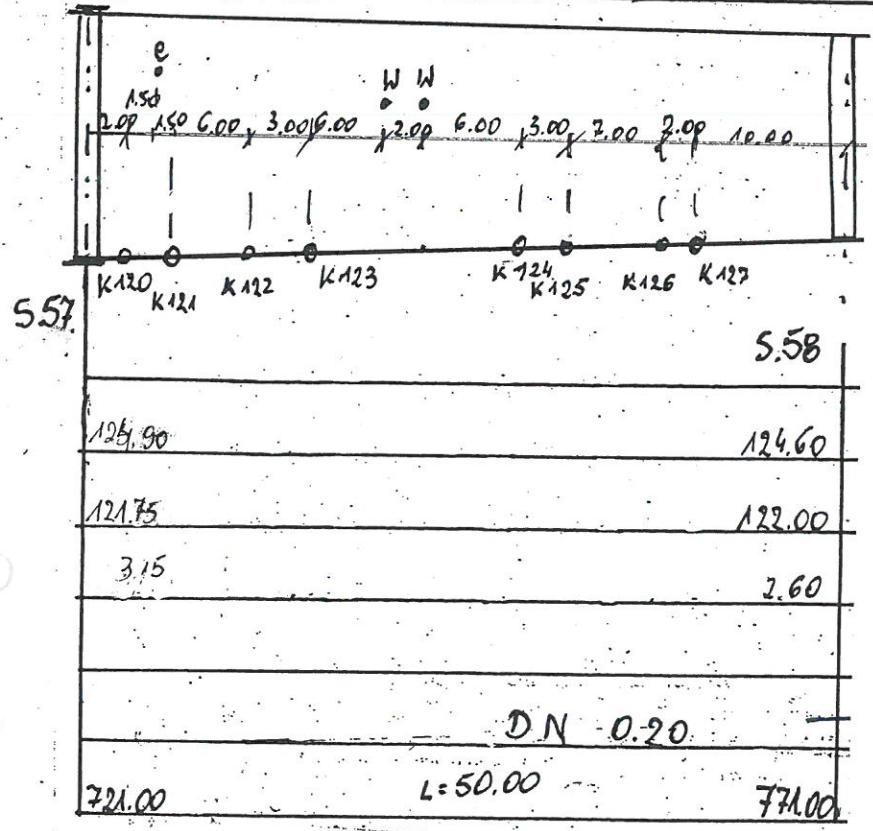 e
W W
1.50
2.00 1.50 6.00 3.00 6.00 2.00 6.00 3.00 7.00 2.00 10.00
K120 K121 K122 K123 K124 K125 K126 K127
S57. S.58
124.90 124.60
121.75 122.00
3.15 2.60
DN 0.20
721.00 L=50.00 771.00